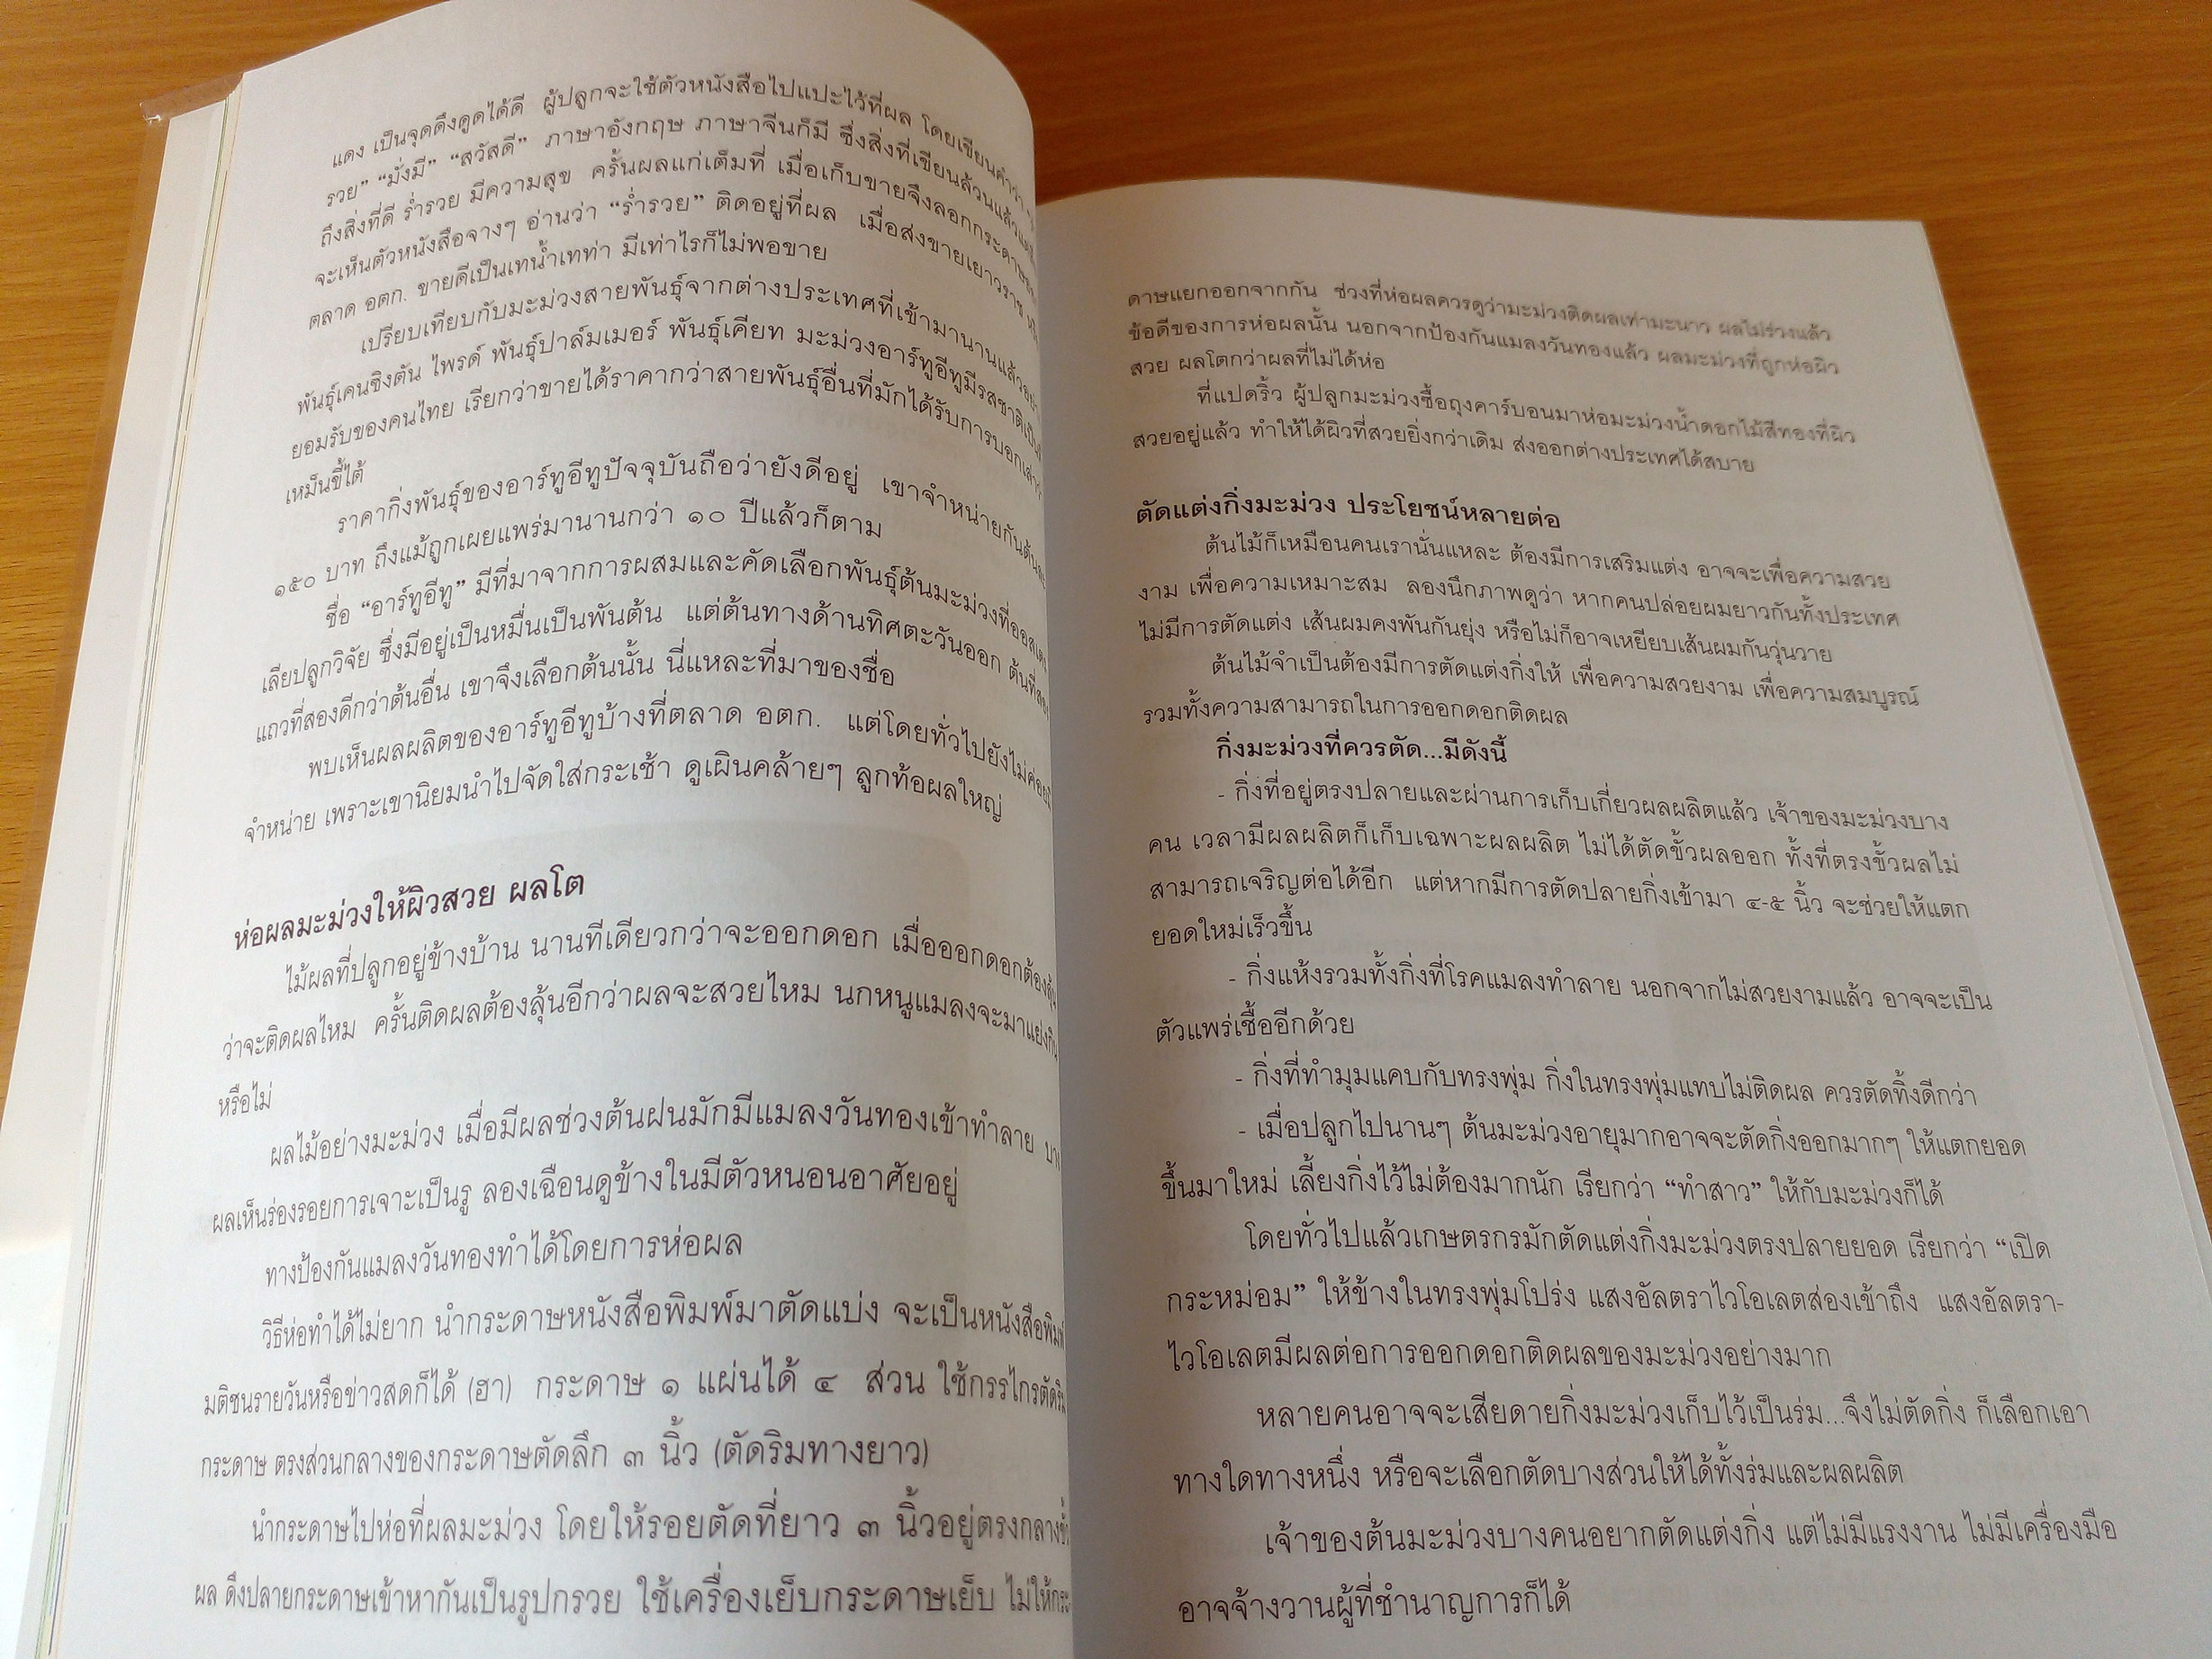 แดง เป็นจุดดึงดูดได้ดี ผู้ปลูกจะใช้ตัวหนังสือไปแปะไว้ที่ผล โดยเขียนคำว่า
รวย” “มั่งมี” “สวัสดี” ภาษาอังกฤษ ภาษาจีนก็มี ซึ่งสิ่งที่เขียนล้วนแล้ว
ถึงสิ่งที่ดี ร่ำรวย มีความสุข ครั้นผลแก่เต็มที่ เมื่อเก็บขายจึงลอกกระดาษ
จะเห็นตัวหนังสือจางๆ อ่านว่า “ร่ำรวย” ติดอยู่ที่ผล เมื่อส่งขายเยาวราช
ตลาด อตก. ขายดีเป็นเทน้ำเทท่า มีเท่าไรก็ไม่พอขาย
เปรียบเทียบกับมะม่วงสายพันธุ์จากต่างประเทศที่เข้ามานานแล้ว
พันธุ์เคนซิงตัน ไพรด์ พันธุ์ปาล์มเมอร์ พันธุ์เคียท มะม่วงอาร์ทูอีทูมีรสชาติเป็นที่
ยอมรับของคนไทย เรียกว่าขายได้ราคากว่าสายพันธุ์อื่นที่มักได้รับการบอกเล่าว่า
เหม็นขี้ไต้
ราคากิ่งพันธุ์ของอาร์ทูอีทูปัจจุบันถือว่ายังดีอยู่ เขาจำหน่ายกันต้นละ
๑๕๐ บาท ถึงแม้ถูกเผยแพร่มานานกว่า ๑๐ ปีแล้วก็ตาม
ชื่อ “อาร์ทูอีทู” มีที่มาจากการผสมและคัดเลือกพันธุ์ต้นมะม่วงที่ออสเตร
เลียปลูกวิจัย ซึ่งมีอยู่เป็นหมื่นเป็นพันต้น แต่ต้นทางด้านทิศตะวันออก ต้นที่สอง
แถวที่สองดีกว่าต้นอื่น เขาจึงเลือกต้นนั้น นี่แหละที่มาของชื่อ
พบเห็นผลผลิตของอาร์ทูอีทูบ้างที่ตลาด อตก. แต่โดยทั่วไปยังไม่ค่อยมี
จำหน่าย เพราะเขานิยมนำไปจัดใส่กระเช้า ดูเผินคล้ายๆ ลูกท้อผลใหญ่
ห่อผลมะม่วงให้ผิวสวย ผลโต
ไม้ผลที่ปลูกอยู่ข้างบ้าน นานทีเดียวกว่าจะออกดอก เมื่อออกดอกต้องลุ้น
ว่าจะติดผลไหม ครั้นติดผลต้องลุ้นอีกว่าผลจะสวยไหม นกหนูแมลงจะมาแย่งกิน
หรือไม่
ผลไม้อย่างมะม่วง เมื่อมีผลช่วงต้นฝนมักมีแมลงวันทองเข้าทำลาย บาง
ผลเห็นร่องรอยการเจาะเป็นรู ลองเฉือนดูข้างในมีตัวหนอนอาศัยอยู่
ทางป้องกันแมลงวันทองทำได้โดยการห่อผล
วิธีห่อทำได้ไม่ยาก นำกระดาษหนังสือพิมพ์มาตัดแบ่ง จะเป็นหนังสือพิมพ์
มติชนรายวันหรือข่าวสดก็ได้ (ฮา) กระดาษ ๑ แผ่นได้ ๔ ส่วน ใช้กรรไกรตัดริม
กระดาษ ตรงส่วนกลางของกระดาษตัดลึก ๓ นิ้ว (ตัดริมทางยาว)
นำกระดาษไปห่อที่ผลมะม่วง โดยให้รอยตัดที่ยาว ๓ นิ้วอยู่ตรงกลางขั้ว
ผล ดึงปลายกระดาษเข้าหากันเป็นรูปกรวย ใช้เครื่องเย็บกระดาษเย็บ ไม่ให้กระ
ดาษแยกออกจากกัน ช่วงที่ห่อผลควรดูว่ามะม่วงติดผลเท่ามะนาว ผลไม่ร่วงแล้ว
ข้อดีของการห่อผลนั้น นอกจากป้องกันแมลงวันทองแล้ว ผลมะม่วงที่ถูกห่อผิว
สวย ผลโตกว่าผลที่ไม่ได้ห่อ
ที่แปดริ้ว ผู้ปลูกมะม่วงซื้อถุงคาร์บอนมาห่อมะม่วงน้ำดอกไม้สีทองที่ผิว
สวยอยู่แล้ว ทำให้ได้ผิวที่สวยยิ่งกว่าเดิม ส่งออกต่างประเทศได้สบาย
ตัดแต่งกิ่งมะม่วง ประโยชน์หลายต่อ
ต้นไม้ก็เหมือนคนเรานั่นแหละ ต้องมีการเสริมแต่ง อาจจะเพื่อความสวย
งาม เพื่อความเหมาะสม ลองนึกภาพดูว่า หากคนปล่อยผมยาวกันทั้งประเทศ
ไม่มีการตัดแต่ง เส้นผมคงพันกันยุ่ง หรือไม่ก็อาจเหยียบเส้นผมกันวุ่นวาย
ต้นไม้จำเป็นต้องมีการตัดแต่งกิ่งให้ เพื่อความสวยงาม เพื่อความสมบูรณ์
รวมทั้งความสามารถในการออกดอกติดผล
กิ่งมะม่วงที่ควรตัด...มีดังนี้
- กิ่งที่อยู่ตรงปลายและผ่านการเก็บเกี่ยวผลผลิตแล้ว เจ้าของมะม่วงบาง
คน เวลามีผลผลิตก็เก็บเฉพาะผลผลิต ไม่ได้ตัดขั้วผลออก ทั้งที่ตรงขั้วผลไม่
สามารถเจริญต่อได้อีก แต่หากมีการตัดปลายกิ่งเข้ามา ๔-๕ นิ้ว จะช่วยให้แตก
ยอดใหม่เร็วขึ้น
- กิ่งแห้งรวมทั้งกิ่งที่โรคแมลงทำลาย นอกจากไม่สวยงามแล้ว อาจจะเป็น
ตัวแพร่เชื้ออีกด้วย
- กิ่งที่ทำมุมแคบกับทรงพุ่ม กิ่งในทรงพุ่มแทบไม่ติดผล ควรตัดทิ้งดีกว่า
- เมื่อปลูกไปนานๆ ต้นมะม่วงอายุมากอาจจะตัดกิ่งออกมากๆ ให้แตกยอด
ขึ้นมาใหม่ เลี้ยงกิ่งไว้ไม่ต้องมากนัก เรียกว่า “ทำสาว” ให้กับมะม่วงก็ได้
โดยทั่วไปแล้วเกษตรกรมักตัดแต่งกิ่งมะม่วงตรงปลายยอด เรียกว่า “เปิด
กระหม่อม” ให้ข้างในทรงพุ่มโปร่ง แสงอัลตราไวโอเลตส่องเข้าถึง แสงอัลตรา-
ไวโอเลตมีผลต่อการออกดอกติดผลของมะม่วงอย่างมาก
หลายคนอาจจะเสียดายกิ่งมะม่วงเก็บไว้เป็นร่ม...จึงไม่ตัดกิ่ง ก็เลือกเอา
ทางใดทางหนึ่ง หรือจะเลือกตัดบางส่วนให้ได้ทั้งร่มและผลผลิต
เจ้าของต้นมะม่วงบางคนอยากตัดแต่งกิ่ง แต่ไม่มีแรงงาน ไม่มีเครื่องมือ
อาจจ้างวานผู้ที่ชำนาญการก็ได้